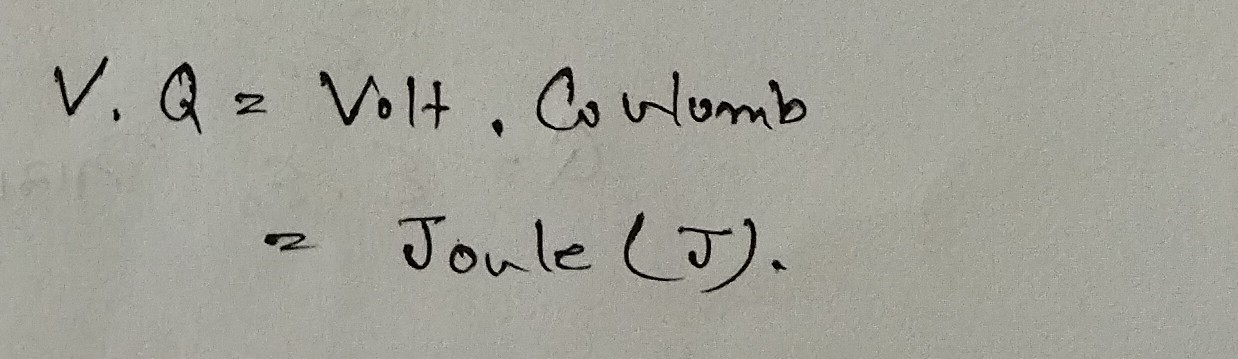 V. Q = Volt. Coulomb
= Joule (J).